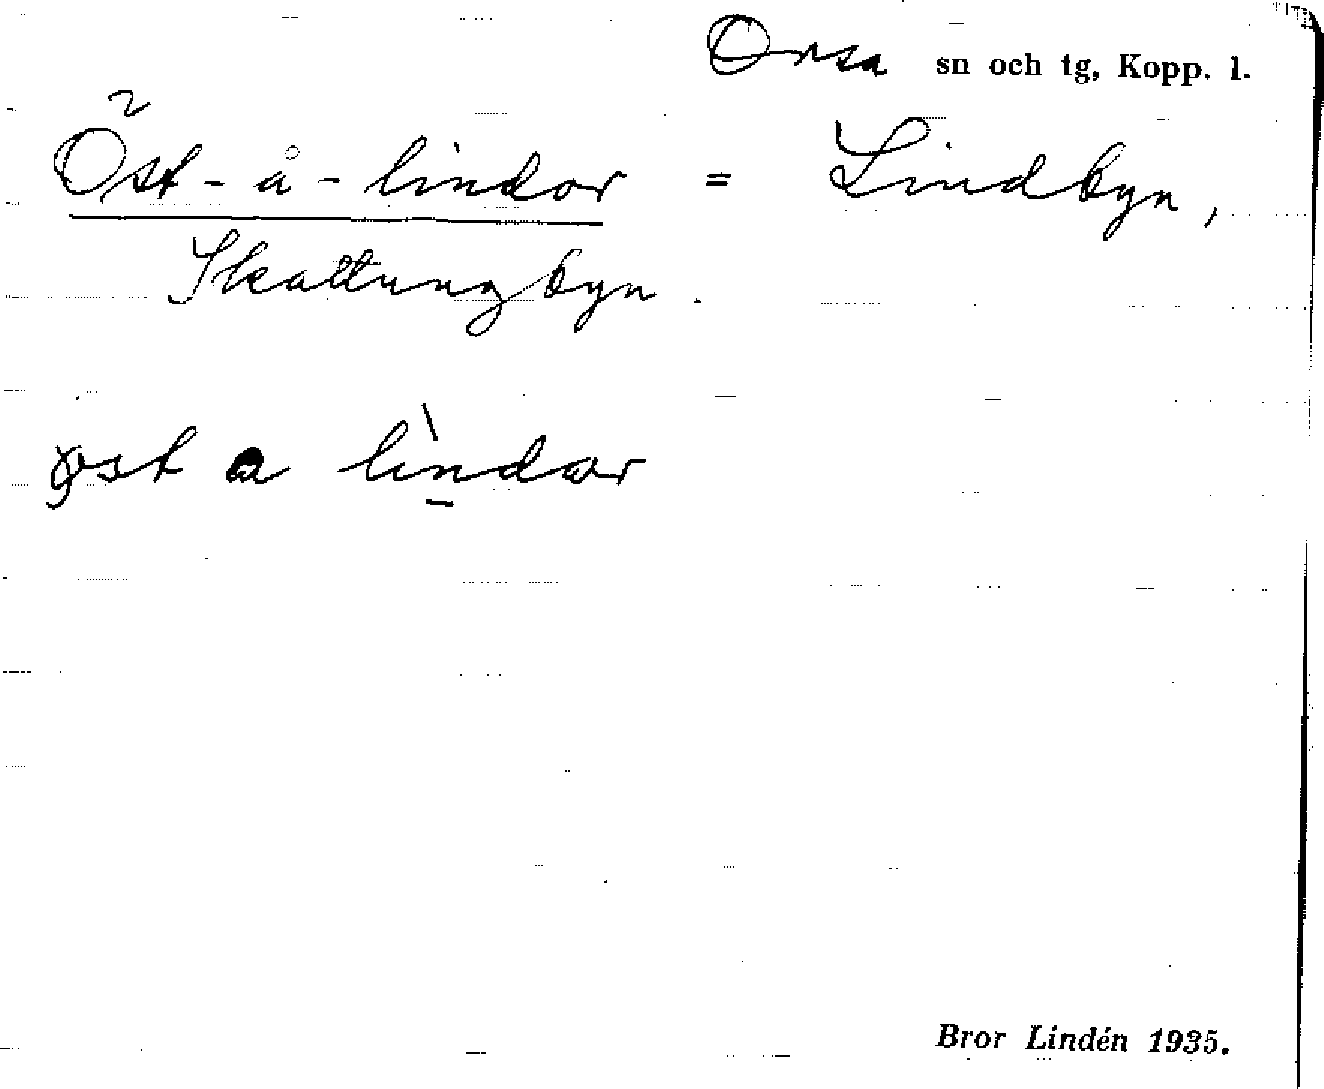 Orsa sn och tg, Kopp. l.
Öst-å-lindor = Lindbyn,
Skattungbyn.
øst a lìndar
Bror Lindén 1935.